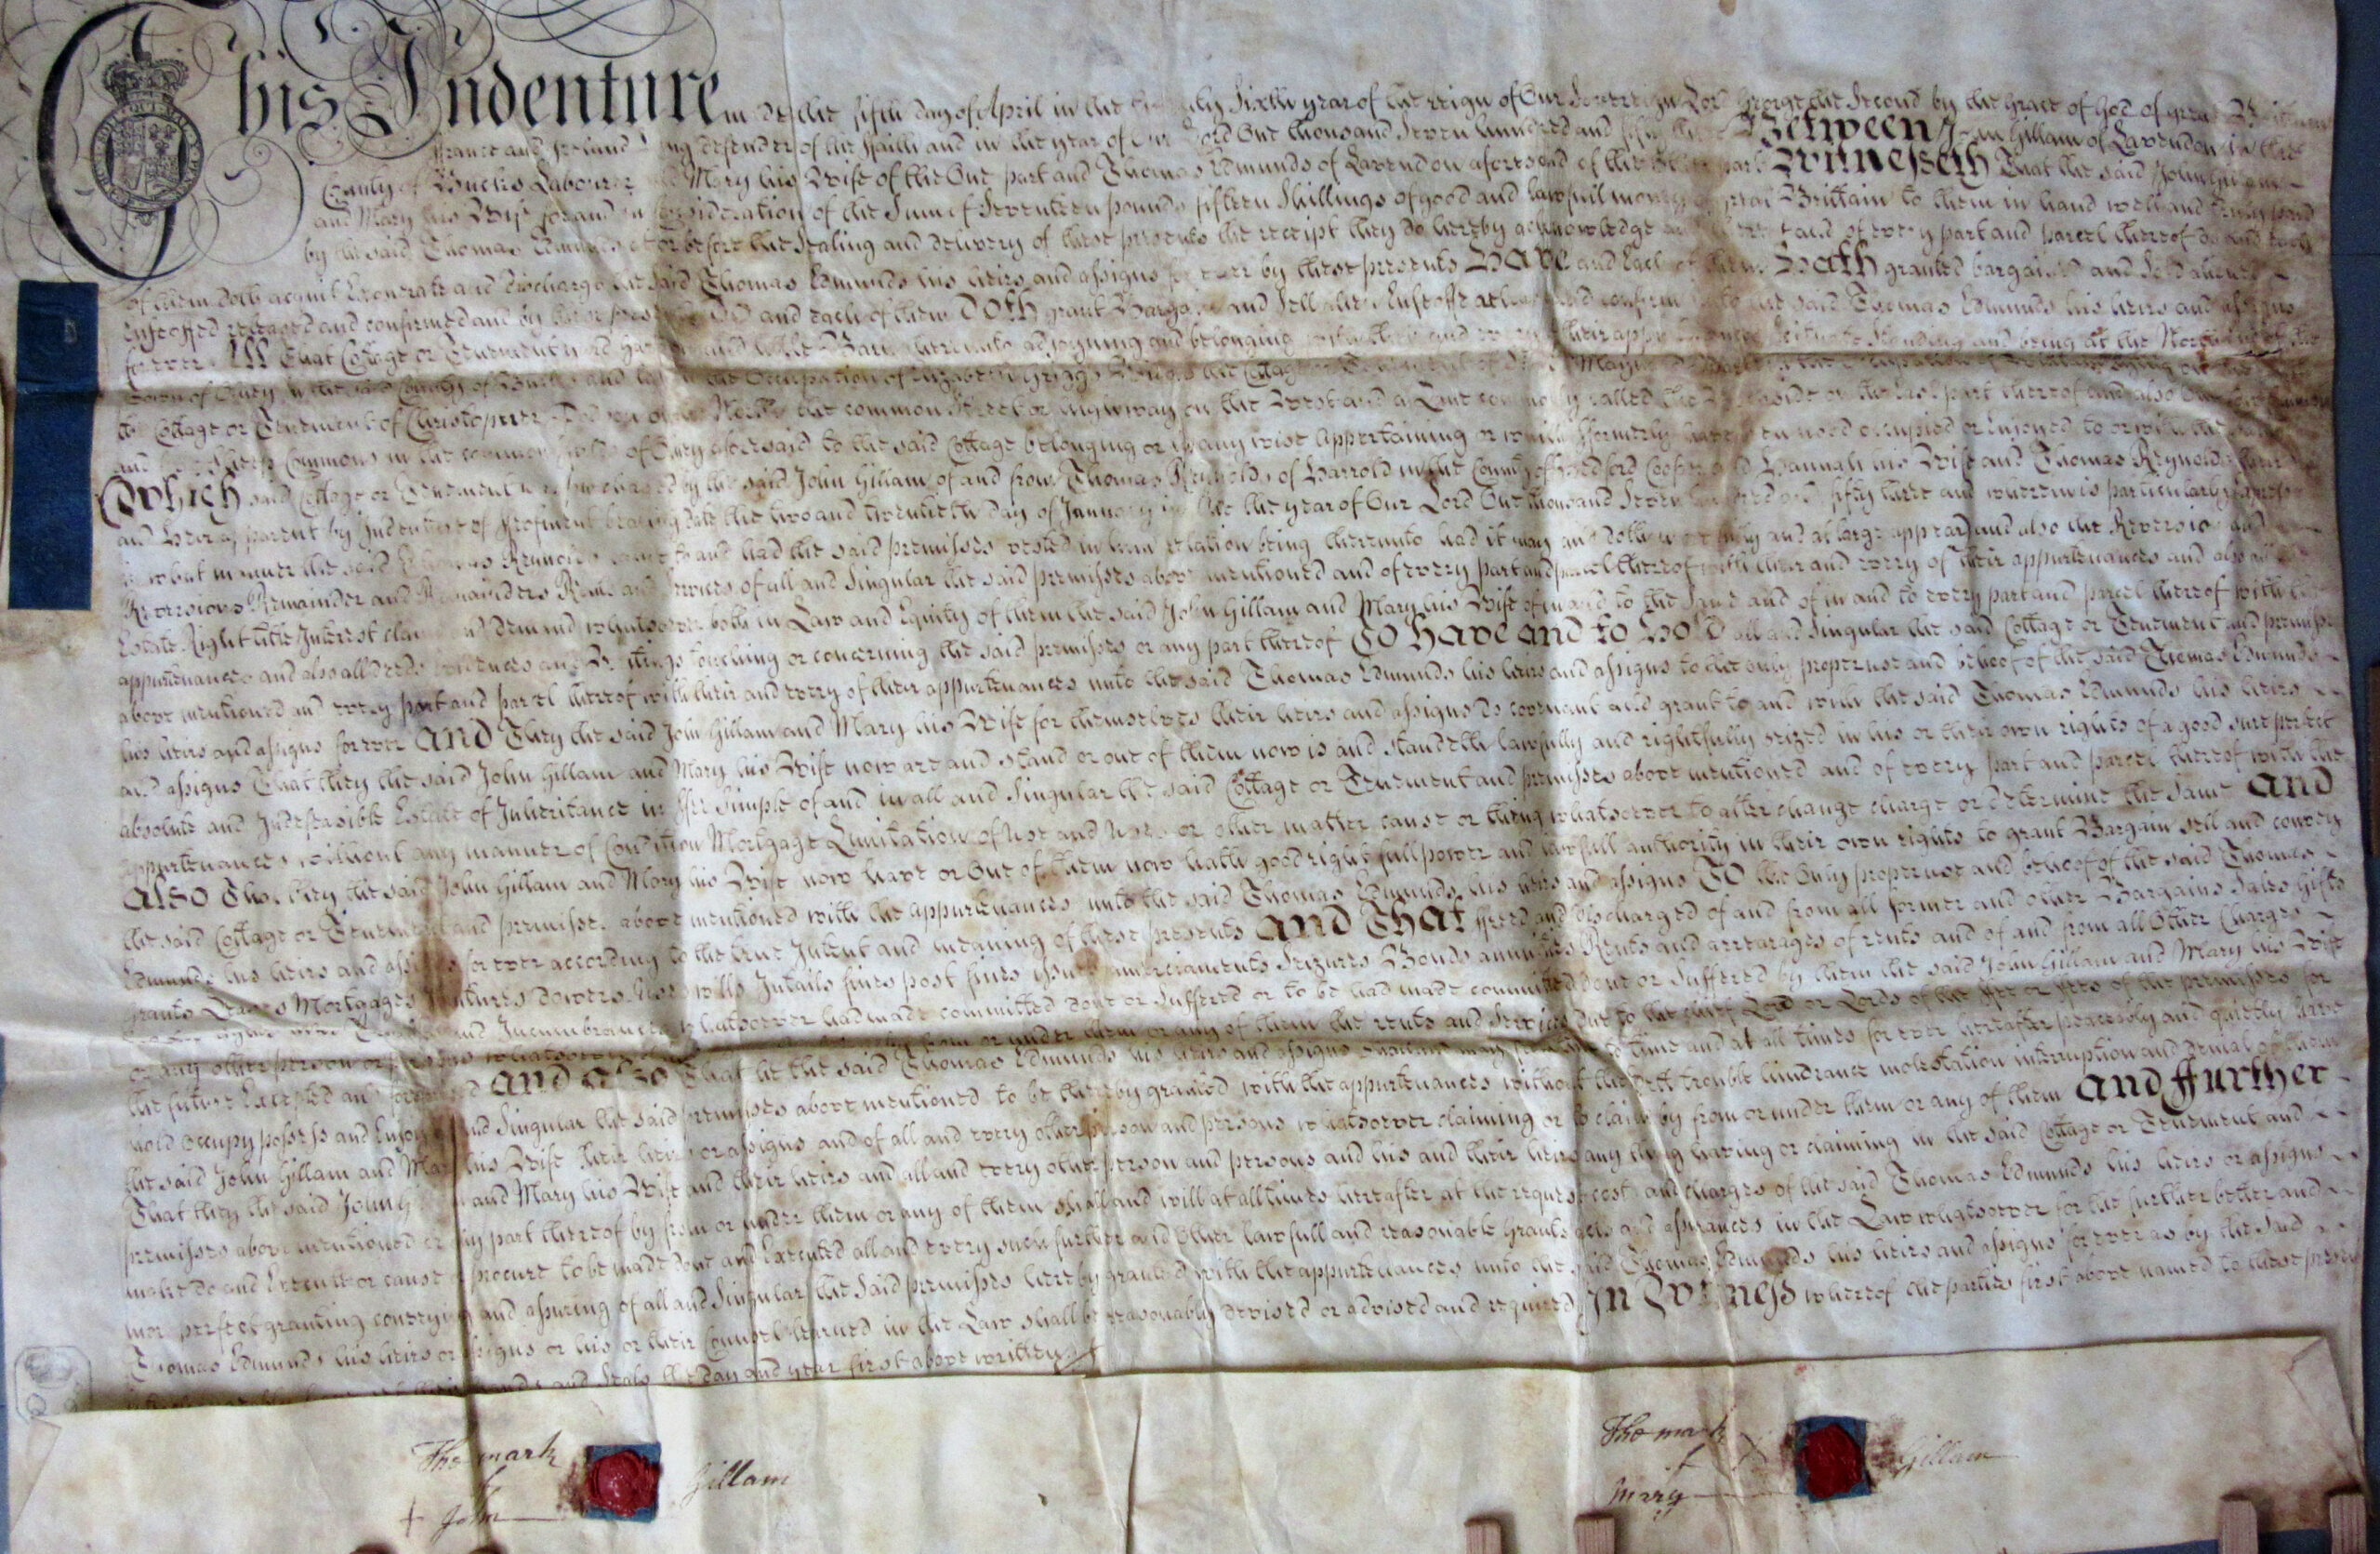 This Indenture made the fifth day of April in the Sixth year of the reign of Our Sovereign Lord George the Second by the grace of God of great Britain
France and Ireland King defender of the Faith and in the year of Our Lord One thousand Seven hundred and fifty Between John Gillam of Lavendon in the
County of Bucks Labourer and Mary his Wife of the One part and Thomas Edmunds of Lavendon aforesaid of the Other part Witnesseth That the said John Gillam
and Mary his Wife for and in Consideration of the Sum of Seventeen pounds fifteen Shillings of good and lawfull money of great Brittain to them in hand well and truly paid
by the said Thomas Edmunds at or before the Sealing and delivery of these presents the receipt they do hereby acknowledge and thereof and of every part and parcel thereof do and Each
of them doth acquit Exonerate and discharge the said Thomas Edmunds his heirs and assigns for ever by these presents Have and Each of them Hath granted bargained and Sold aliened
Enfeoffed released and confirmed and by these presents Do and each of them Doth grant Bargain and Sell alien Enfeoffe release and confirm unto the said Thomas Edmunds his heirs and assigns
for ever All that Cottage or Tenement yard and little Barn thereunto adjoyning and belonging with their and every their appurtenances Scituate Standing and being at the North End of the
Town of Olney in the said County of Bucks and in the Occupation of Elizabeth Griggs the Cottage or Tenement of
the Cottage or Tenement of Christopher on the North the common Street or highway on the West and a Lane commonly called the on the East part thereof and also One Cow Common
and Sheep Commons in the common fields of Olney aforesaid to the said Cottage belonging or in any wise Appertaining or which formerly have been used occupied or Enjoyed to or with the same
Which said Cottage or Tenement was purchased by the said John Gillam of and from Thomas Reynolds of Harrold in the County of Bedford Cooper and Hannah his Wife and Thomas Reynolds their
and Heir apparent by Indenture of Feofment bearing date the two and twentieth day of January in the year of Our Lord One thousand Seven hundred and fifty three and wherein is particularly
in what manner the said Thomas Reynolds came to and had the said premisses vested in him relation being thereunto had it may and doth more fully and at large appear and also the Reversion and
Reversions Remainder and Remainders Rents and Services of all and Singular the said premisses above mentioned and of every part and parcel thereof with their and every of their appurtenances and also all the
Estate Right title Interest claim and demand whatsoever both in Law and Equity of them the said John Gillam and Mary his Wife of in and to the Same and of in and to every part and parcel thereof with the
appurtenances and also all deeds evidences and Writings touching or concerning the said premisses or any part thereof To have and to hold all and Singular the said Cottage or Tenement and premisses
above mentioned and every part and parcel thereof with their and every of their appurtenances unto the said Thomas Edmunds his heirs and assigns to the only proper use and behoof of the said Thomas Edmunds
his heirs and assigns for ever And They the said John Gillam and Mary his Wife for themselves their heirs and assigns Do covenant and grant to and with the said Thomas Edmunds his heirs
and assigns That they the said John Gillam and Mary his Wife now are and stand or one of them now is and standeth lawfully and rightfully seized in his or their own rights of a good sure perfect
absolute and Indefeasible Estate of Inheritance in Fee Simple of and in all and Singular the said Cottage or Tenement and premisses above mentioned and of every part and parcel thereof with the
appurtenances without any manner of Condition Mortgage Limitation of Use and Uses or other matter cause or thing whatsoever to alter change charge or determine the Same And
Also That they the said John Gillam and Mary his Wife now have or One of them now hath good right full power and lawfull authority in their own rights to grant Bargain Sell and convey
the said Cottage or Tenement and premisses above mentioned with the appurtenances unto the said Thomas Edmunds his heirs and assigns To the Only proper use and behoof of the said Thomas
Edmunds his heirs and assigns for ever according to the true Intent and meaning of these presents And That freed and discharged of and from all former and other Bargains Sales Gifts
grants Leases Mortgages Jointures Dowers Uses Wills Intails fines post fines issues amerciaments Seizures Bonds annuities Rents and arrearages of rents and of and from all Other Charges
and Incumbrances whatsoever had made committed done or Suffered or to be had made committed done or Suffered by them the said John Gillam and Mary his Wife
or any other person or persons whatsoever by from or under them or any of them the rents and Services due to the chief Lord or Lords of the Fee or Fees of the premisses for
the future Excepted and foreprized And also That he the said Thomas Edmunds his heirs and assigns shall and may from time to time and at all times for ever hereafter peaceably and quietly have
hold occupy possess and Enjoy all and Singular the said premisses above mentioned to be thereby granted with the appurtenances without the lett trouble hindrance molestation interruption and denial of them
the said John Gillam and Mary his Wife their heirs or assigns and of all and every other person and persons whatsoever claiming or to claim by from or under them or any of them And Further
That they the said John Gillam and Mary his Wife and their heirs and all and every other person and persons and his and their heirs any thing having or claiming in the said Cottage or Tenement and
premisses above mentioned or any part thereof by from or under them or any of them shall and will at all times hereafter at the request cost and charges of the said Thomas Edmunds his heirs or assigns
make do and Execute or cause or procure to be made done and Executed all and every such further and other lawfull and reasonable grants acts and assurances in the Law whatsoever for the further better and
mor perfect granting conveying and assuring of all and Singular the Said premisses hereby granted with the appurtenances unto the said Thomas Edmunds his heirs and assigns for ever as by the said
Thomas Edmunds his heirs or assigns or his or their Counsel learned in the Law shall be reasonably devised or advised and required In Witness whereof the parties first above named to these presents
hands and Seals the day and year first above written
The mark
John Gillam
The mark X
Mary Gillam